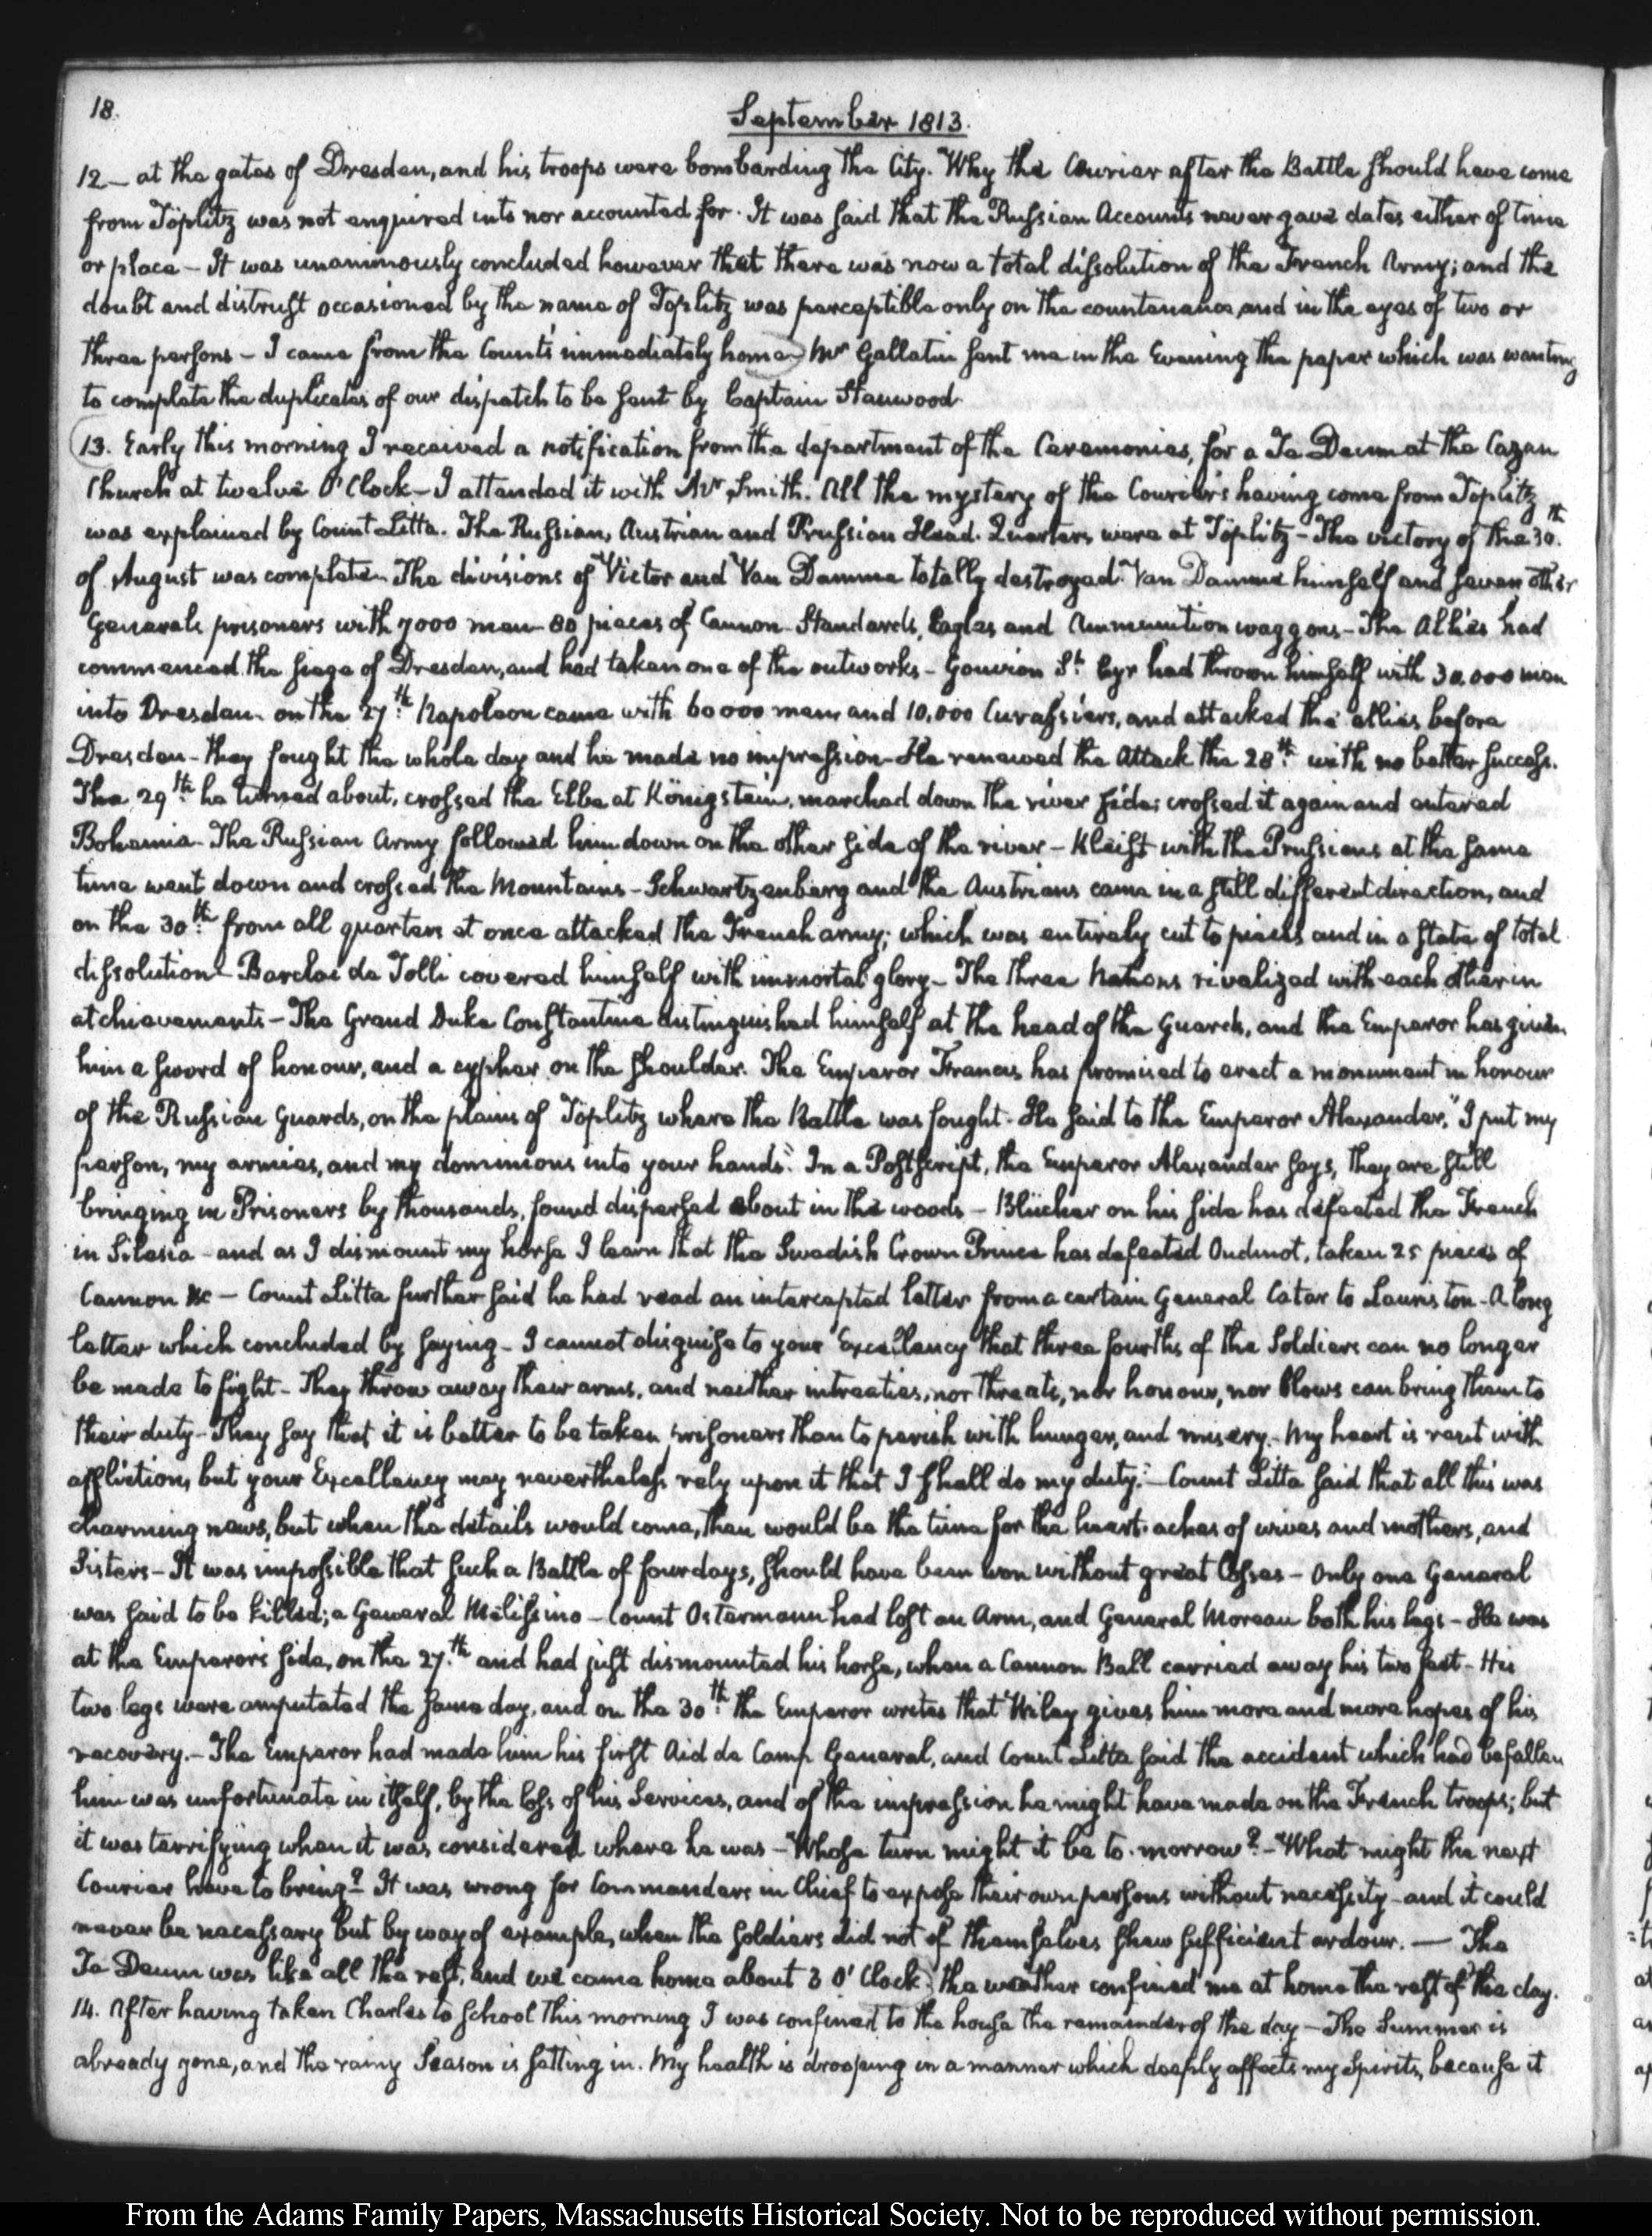 18.
September 1813.
12 — at the gates of Dresden, and his troops were bombarding the City. Why the Courier after the Battle should have come
from Töplitz was not enquired into nor accounted for. It was said that the Russian Accounts never gave dates either of time
or place — It was unanimously concluded however that there was now a total dissolution of the French Army; and the
doubt and distrust occasioned by the name of Toplitz was perceptible only on the countenance, and in the eyes of two or
three persons — I came from the Count's immediately home — Mr Gallatin sent me in the Evening the paper which was wanting
to complete the duplicates of our dispatch to be sent by Captain Stanwood.
13. Early this morning I received a notification from the department of the Ceremonies, for a Te Deum at the Cazan
Church at twelve O'Clock — I attended it with Mr Smith. All the mystery of the Courier's having come from Toplitz
was explained by Count Litta. The Russian, Austrian and Prussian Head-Quarters were at Töplitz — The victory of the 30th
of August was complete — The divisions of Victor and Van Damme totally destroyed. Van Damme himself and seven other
Generals prisoners with 7000 men — 80 pieces of Cannon — Standards, Eagles and Ammunition waggons — The Allies had
commenced the siege of Dresden, and had taken one of the outworks — Gouvion St. Cyr had thrown himself with 30,000 men
into Dresden. on the 27th Napoleon came with 60000 men, and 10,000 Curassiers, and attacked the allies before
Dresden — they fought the whole day and he made no impression — He renewed the Attack the 28th with no better success.
The 29th he turned about, crossed the Elbe at Königstein, marched down the river side; crossed it again and entered
Bohemia — The Russian Army followed him down on the other side of the river — Kleist with the Prussians at the same
time went down and crossed the Mountains — Schwartzenberg and the Austrians came in a still different direction, and
on the 30th from all quarters at once attacked the French army; which was entirely cut to pieces and in a state of total
dissolution — Barclai de Tolli covered himself with immortal glory — The three Nations rivalized with each other in
atchievements — The Grand Duke Constantine distinguished himself at the head of the Guards, and the Emperor has given
him a sword of honour, and a cypher on the shoulder. The Emperor Francis has promised to erect a monument in honour
of the Russian Guards, on the plains of Töplitz where the Battle was fought. He said to the Emperor Alexander, "I put my
person, my armies, and my dominions into your hands." In a Postscript, the Emperor Alexander says, they are still
bringing in Prisoners by thousands, found dispersed about in the woods — Blücher on his side has defeated the French
in Silesia — and as I dismount my horse I learn that the Swedish Crown Prince has defeated Oudinot, taken 25 pieces of
Cannon &c — Count Litta further said he had read an intercepted letter from a certain General Catar to Lauriston — A long
letter which concluded by saying — I cannot disguise to your Excellency that three fourths of the Soldiers can no longer
be made to fight — They throw away their arms, and neither intreaties, nor threats, nor honour, nor blows can bring them to
their duty — They say that it is better to be taken prisoners than to perish with hunger, and misery. — My heart is rent with
affliction, but your Excellency may nevertheless rely upon it that I shall do my duty. — Count Litta said that all this was
charming news, but when the details would come, then would be the time for the heart-aches of wives and mothers, and
Sisters — It was impossible that such a Battle of four days, should have been won without great losses — Only one General
was said to be killed; a General Melissino — Count Ostermann had lost an Arm, and General Moreau both his legs — He was
at the Emperor's side, on the 27th and had just dismounted his horse, when a Cannon Ball carried away his two feet — His
two legs were amputated the same day, and on the 30th the Emperor writes that Wiley gives him more and more hopes of his
recovery. — The Emperor had made him his first Aid de Camp General, and Count Litta said the accident which had befallen
him was unfortunate in itself, by the loss of his Services, and of the impression he might have made on the French troops; but
it was terrifying when it was considered where he was — Whose turn might it be to-morrow? — What might the next
Courier have to bring? It was wrong for Commanders in Chief to expose their own persons without necessity — and it could
never be necessary but by way of example, when the soldiers did not of themselves shew sufficient ardour. — The
Te Deum was like all the rest, and we came home about 3 O'Clock. the weather confined me at home the rest of the day.
14. After having taken Charles to school this morning I was confined to the house the remainder of the day — The Summer is
already gone, and the rainy Season is setting in. My health is drooping in a manner which deeply affects my Spirits, because it
From the Adams Family Papers, Massachusetts Historical Society. Not to be reproduced without permission.